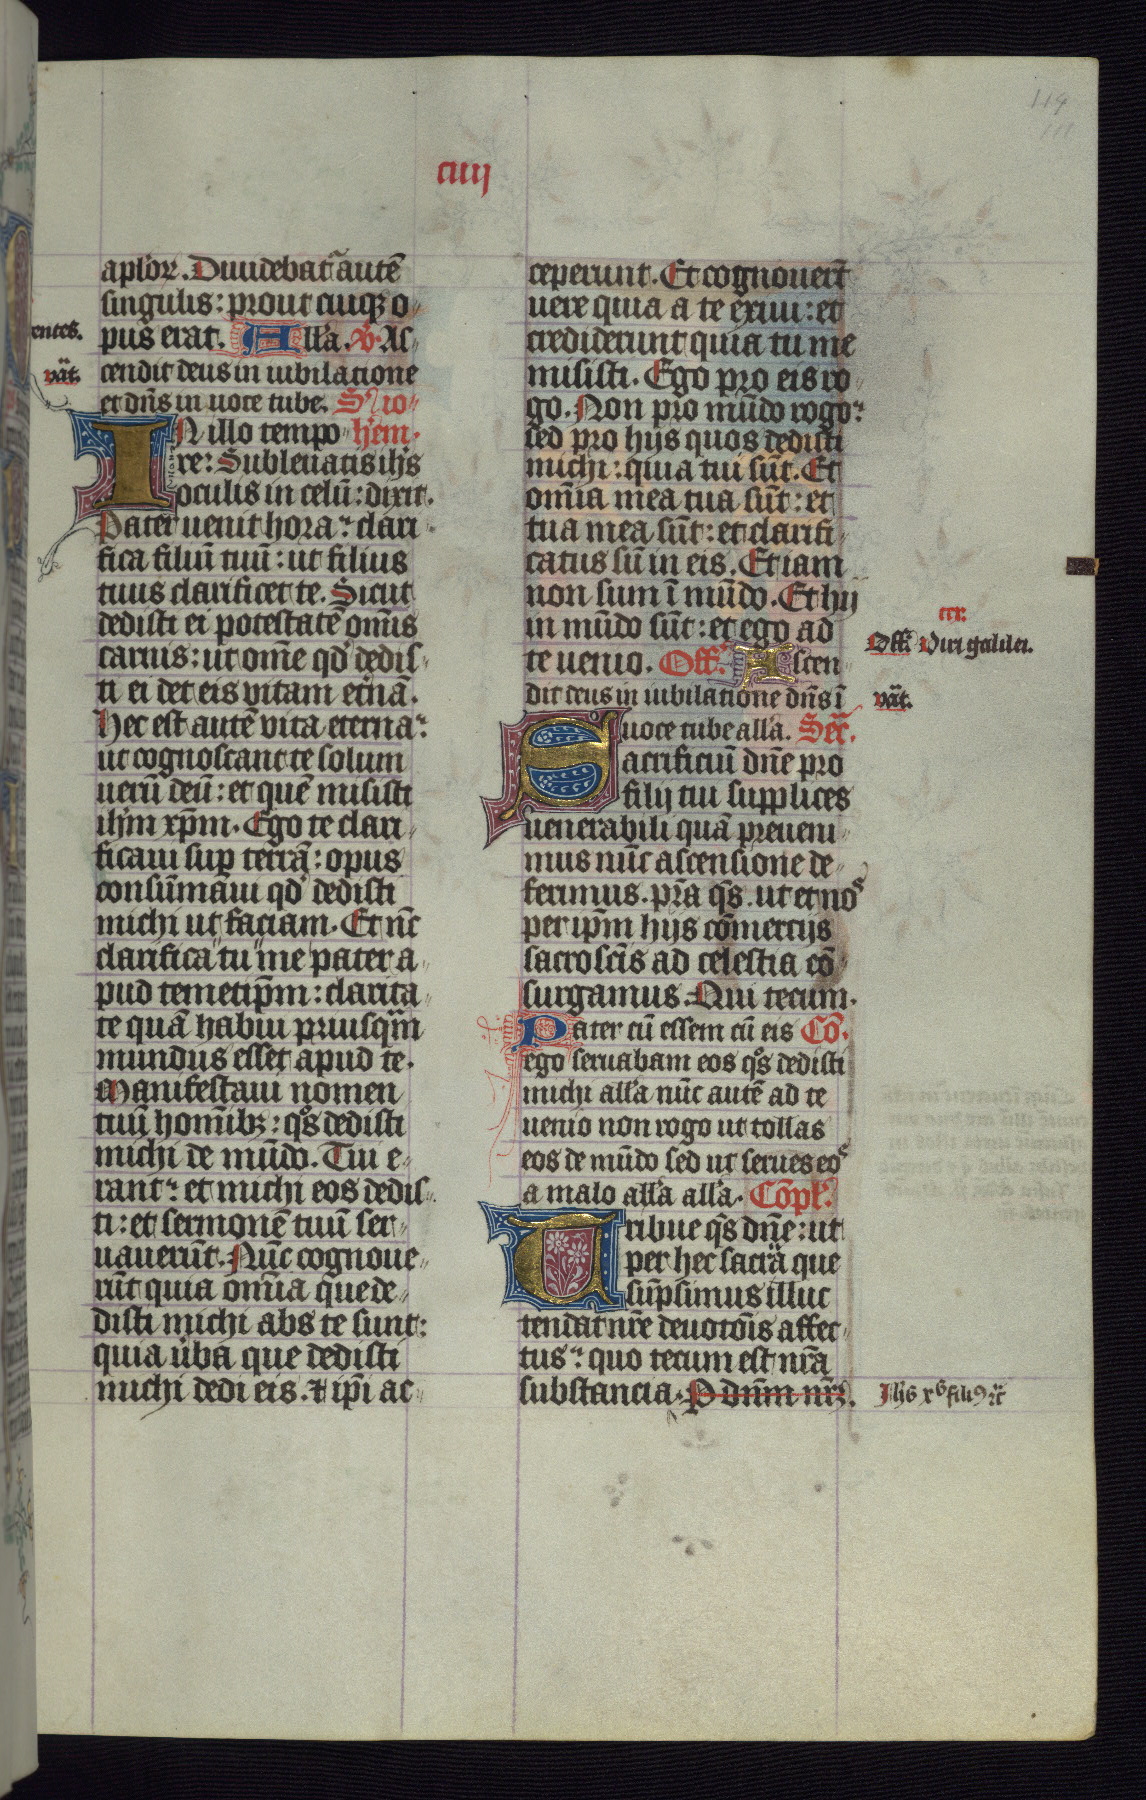 119
111
ciiij
aplor̄. Diuidebat᷑ autē
singulis: prout cuiq; o-
pus erat. Alla. V. As-
cendit deus in iubilatione
et dn̄s in uoce tube. S. io-
IN illo tempo- hēm.
re: Subleuatis ihs̄
oculis in celū: dixit.
Pater uenit hora: clari-
fica filiū tuū: ut filius
tuus clarificet te. Sicut
dedisti ei potestatē om̄is
carnis: ut om̄e qd̄ dedis-
ti ei det eis vitam et̄nā.
Hec est autē vita eterna:
ut cognoscant te solum
uerū deū: et quē misisti
ihm̄ xp̄m. Ego te clari-
ficaui sup terrā: opus
consūmaui qd̄ dedisti
michi ut faciam. Et nūc
clarifica tu me pater a-
pud temetip̄m: clarita-
te quā habui priusq̄m
mundus esset apud te.
Manifestaui nomen
tuū homīb;: qōs dedisti
michi de mūdo. Tui e-
rant: et michi eos dedis-
ti: et sermonē tuū ser-
uauerūt. Nūc cognoue-
rūt quia om̄ia que de-
disti michi abs te sunt:
quia ūba que dedisti
michi dedi eis. ⁊ ip̄i ac-
ceperunt. Et cognouerūt
uere quia a te exiui: et
crediderunt quia tu me
misisti. Ego pro eis ro-
go. Non pro mūdo rogo:
sed pro hijs quos dedisti
michi: quia tui sūt. Et
om̄ia mea tua sūt: et
tua mea sūt: et clarifi-
catus sū in eis. Et iam
non sum ī mūdo. Et hij
in mūdo sūt: et ego ad
te uenio. Off. Ascen-
dit deus in iubilatione dn̄s ī
uoce tube alla. Sec̄r.
Sacrificiū dn̄e pro
filij tui supplices
uenerabili quā preueni-
mus nūc ascensione de-
ferimus. pr̄a qs̄. ut et nos
per ip̄m hijs cōmercijs
sacroscīs ad celestia cō-
surgamus. Qui tecum.
Pater cū essem cū eis Cō.
ego seruabam eos qōs dedisti
michi alla nūc autē ad te
uenio non rogo ut tollas
eos de mūdo sed ut serues eos
a malo alla alla. Cōpl̄.
Tribue qs̄ dn̄e: ut
per hec sacra que
sūpsimus illuc
tendat nr̄e deuotōis affec-
tus: quo tecum est nr̄a
substancia. P dnm̄ nr̄m.
entes.
vāt.
Off. Viri galilei.
vāt.